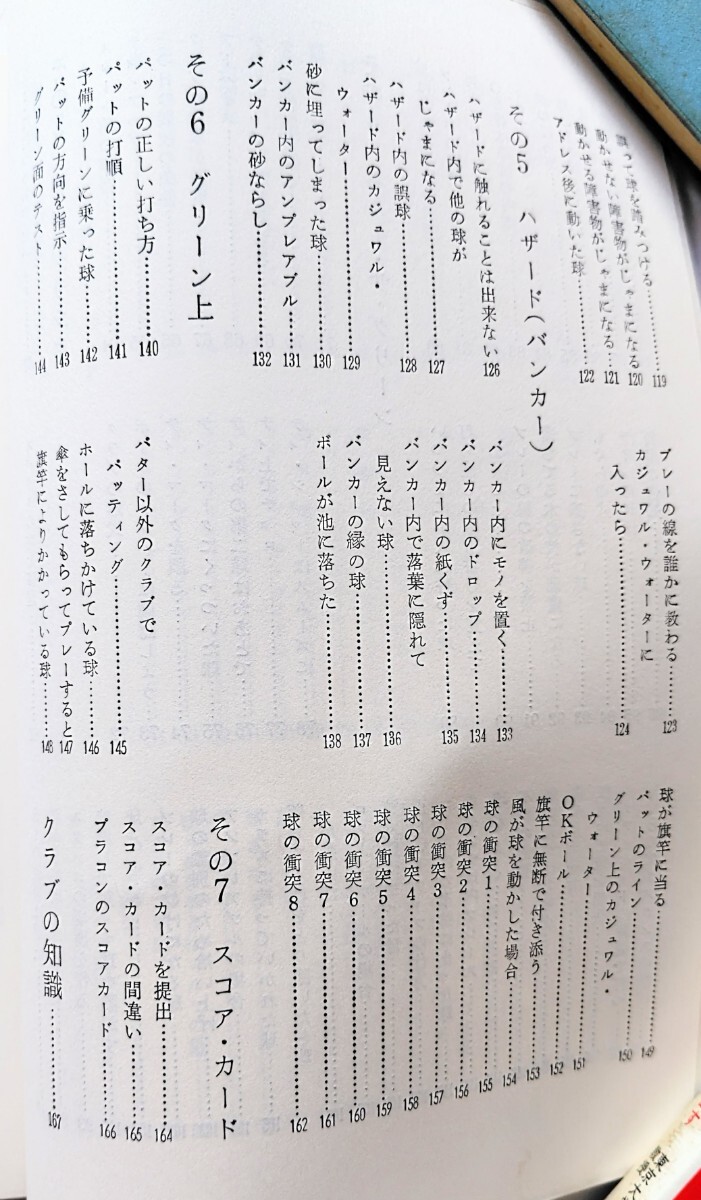 誤って球を踏みつける……119
動かせない障害物がじゃまになる…120
動かせる障害物がじゃまになる…121
アドレス後に動いた球……122
その5 ハザード（バンカー）
ハザードに触れることは出来ない…126
ハザード内で他の球が
じゃまになる……127
ハザード内の誤球……128
ハザード内のカジュワル・
ウォーター……129
砂に埋ってしまった球……130
バンカー内のアンプレアブル……131
バンカーの砂ならし……132
その6 グリーン上
パットの正しい打ち方……140
パットの打順……141
予備グリーンに乗った球……142
パットの方向を指示……143
グリーン面のテスト……144
プレーの線を誰かに教わる……123
カジュワル・ウォーターに
入ったら……124
バンカー内にモノを置く……133
バンカー内のドロップ……134
バンカー内の紙くず……135
バンカー内で落葉に隠れて
見えない球……136
バンカーの縁の球……137
ボールが池に落ちた……138
パター以外のクラブで
パッティング……145
ホールに落ちかけている球……146
傘をさしてもらってプレーすると…147
旗竿によりかかっている球……148
球が旗竿に当る……149
パットのライン……150
グリーン上のカジュワル・
ウォーター……151
OKボール……152
旗竿に無断で付き添う……153
風が球を動かした場合……154
球の衝突1……155
球の衝突2……156
球の衝突3……157
球の衝突4……158
球の衝突5……159
球の衝突6……160
球の衝突7……161
球の衝突8……162
その7 スコア・カード
スコア・カードを提出……164
スコア・カードの間違い……165
プラコンのスコアカード……166
クラブの知識……167